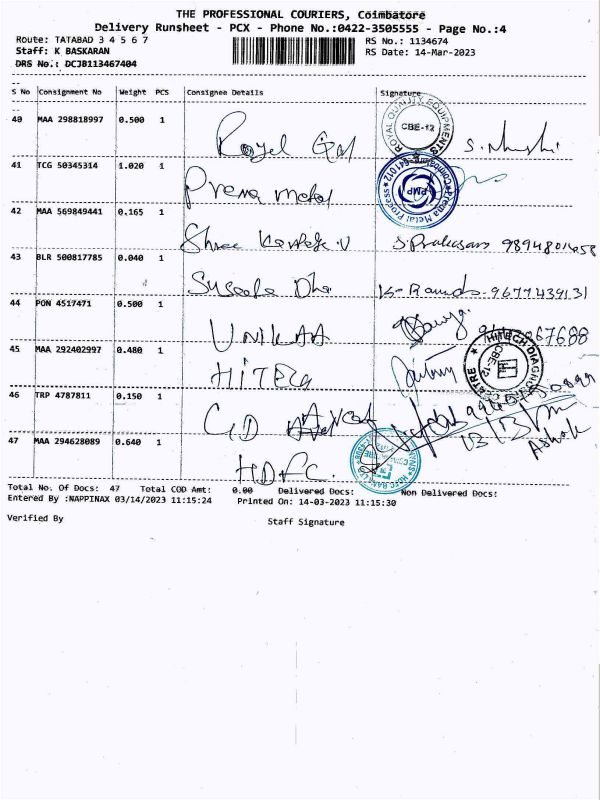 THE PROFESSIONAL COURIERS, Coimbatore
Delivery Runsheet - PCX - Phone No.:0422-3505555 - Page No.:4
Route: TATABAD 3 4 5 6 7 RS No.: 1134674
Staff: K BASKARAN RS Date: 14-Mar-2023
DRS No.: DCJB113467404
S No Consignment No Weight PCS Consignee Details Signature
40 MAA 298818997 0.500 1
Royel
ROYAL QUALITY EQUIPMENTS CBE-12
41 TCG 50345314 1.020 1
Prema metal
Prema Metal Process Coimbatore-641012 PMP
42 MAA 569849441 0.165 1
Shree V
43 BLR 500817785 0.040 1
K- 9677439131
44 PON 4517471 0.500 1
UNIKAA
45 MAA 292402997 0.480 1
HITECH
HITECH DIAGNOSTIC CENTRE CBE-12
46 TRP 4787811 0.150 1
GD
13/3/
Ashok
47 MAA 294628089 0.640 1
HDFC.
Total No. Of Docs: 47 Total COD Amt: 0.00 Delivered Docs: Non Delivered Docs:
Entered By :NAPPINAX 03/14/2023 11:15:24 Printed On: 14-03-2023 11:15:30
Verified By Staff Signature